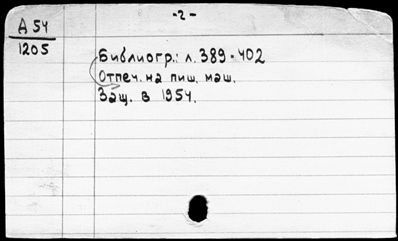 -2-
Д 54
1205
Библиогр.: л. 389-402
Отпеч. на пиш. маш.
Защ. в 1954.